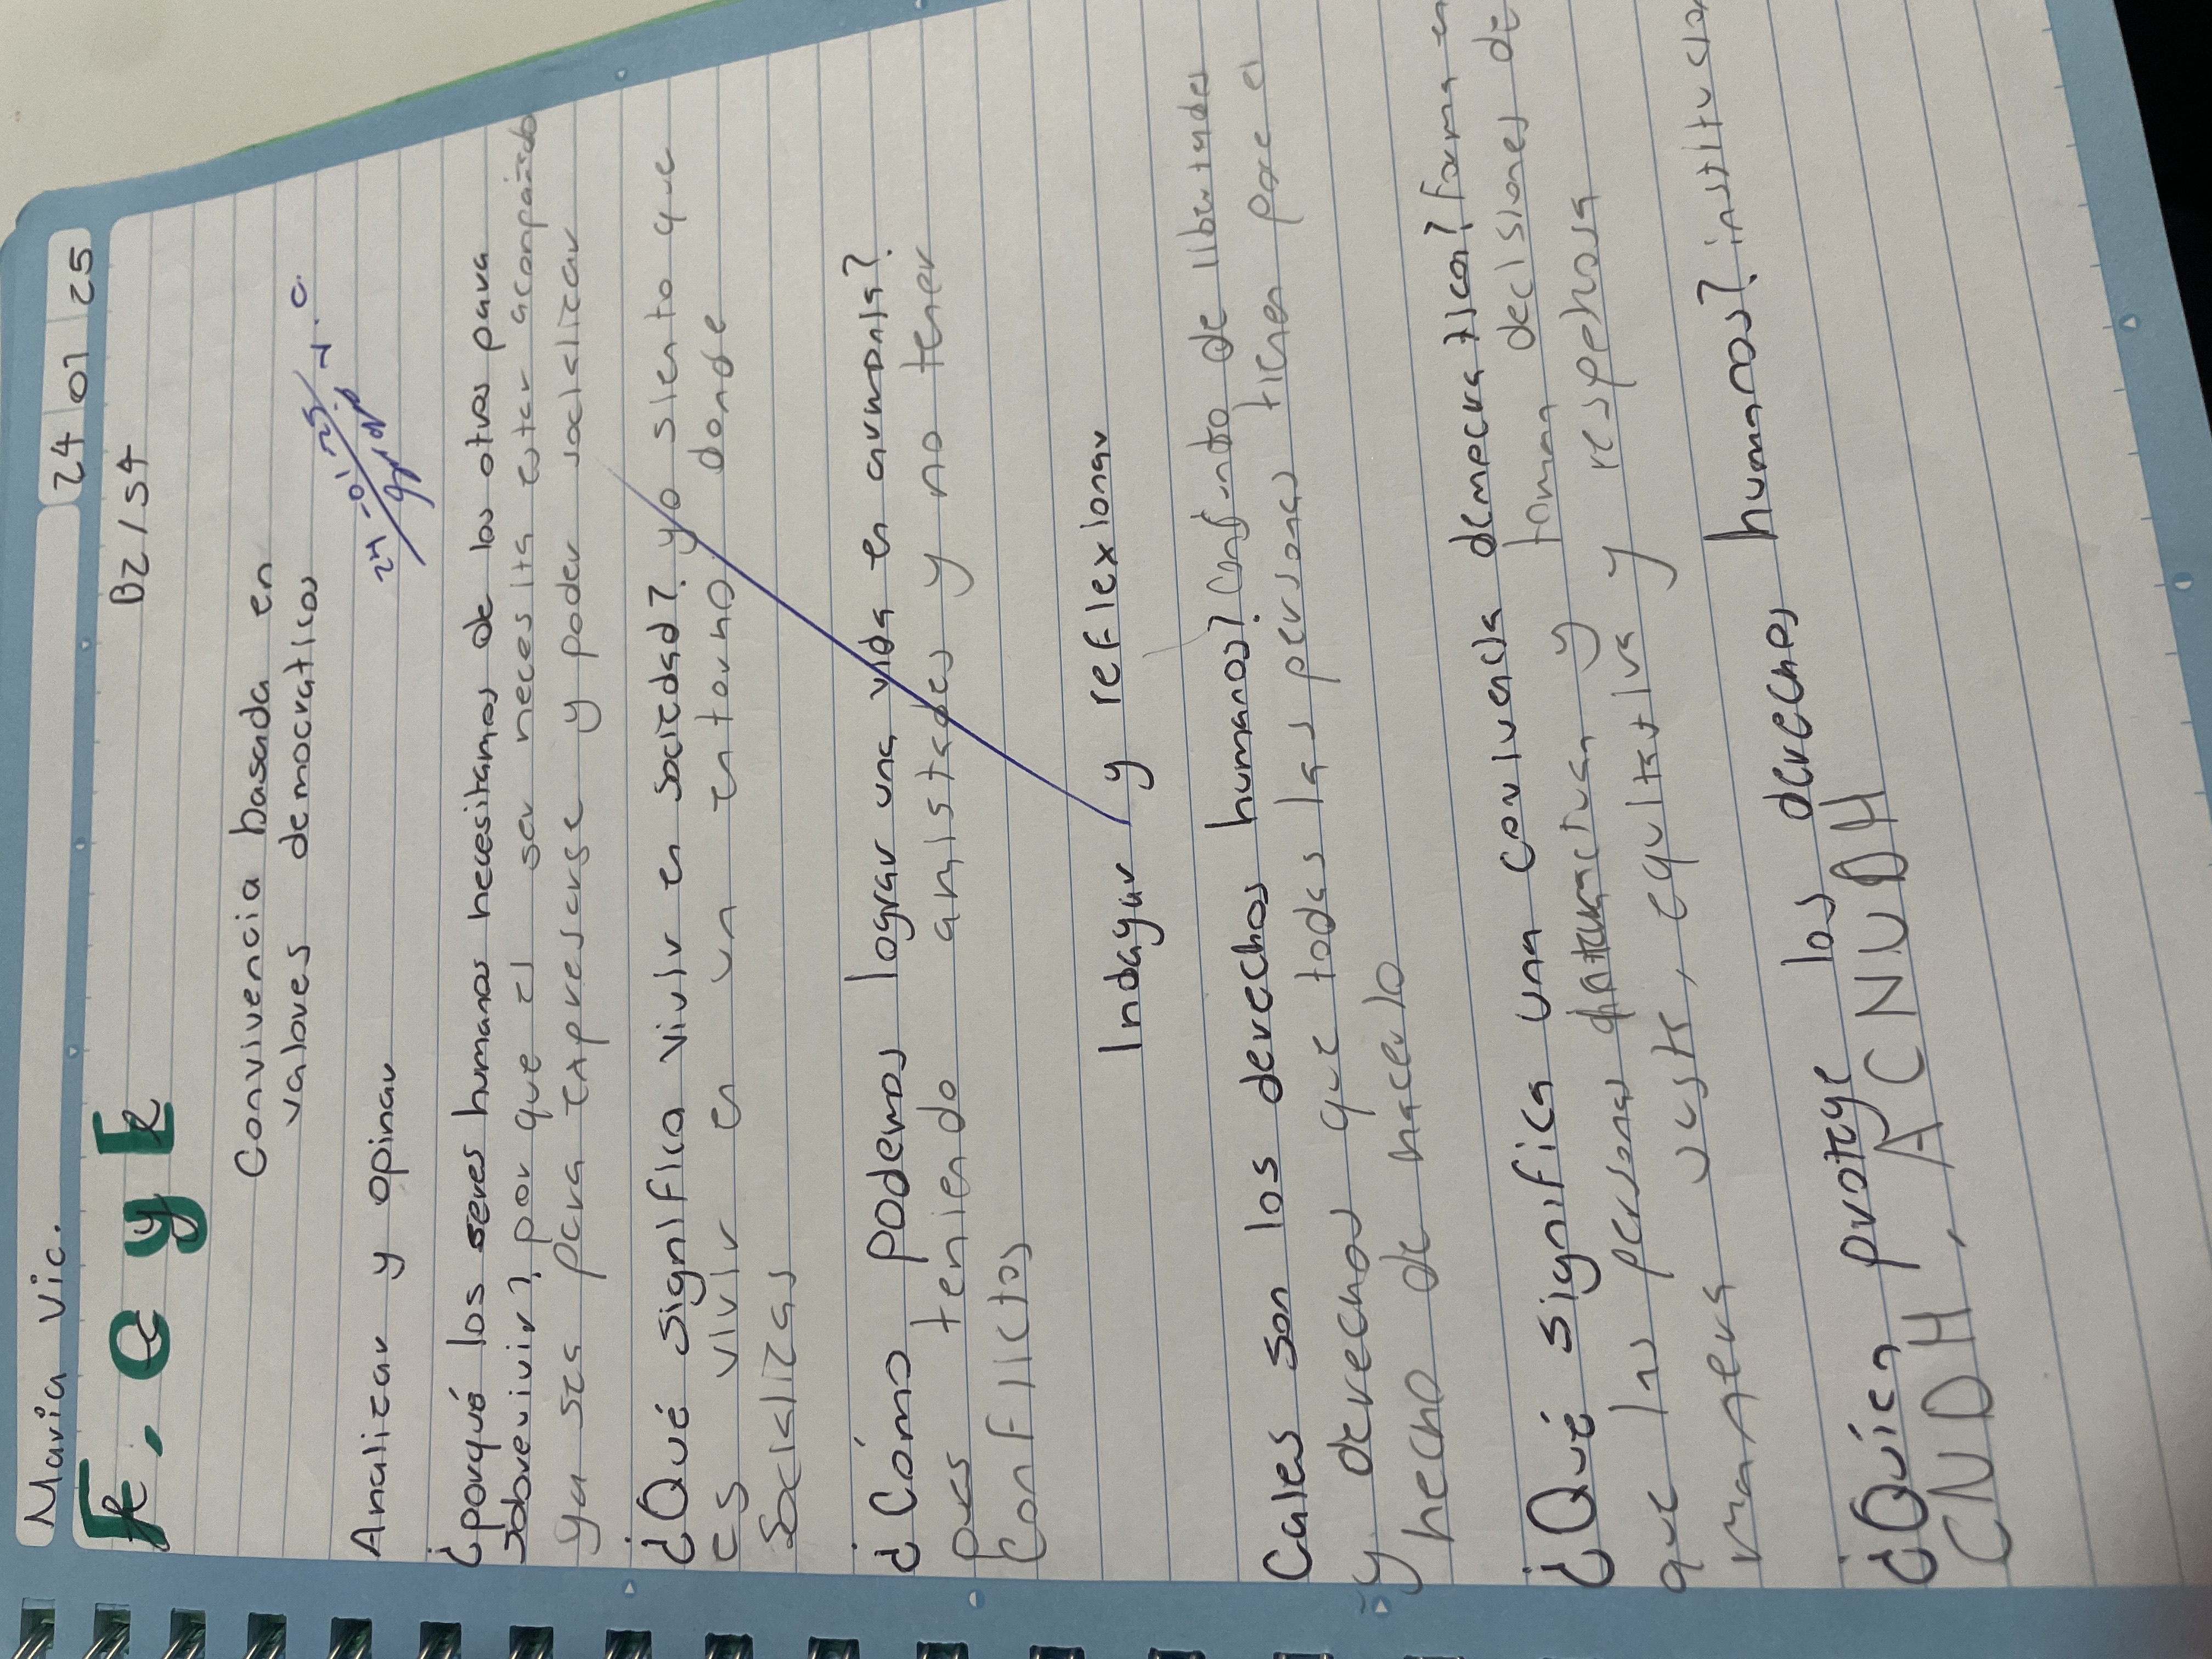 Maria Vic.
24 | 01 | 25
F, C y E
B2 / S4
Convivencia basada en
valores democraticos
24-01-25
Analizar y opinar
¿porqué los seres humanos necesitamos de los otros para
sobrevivir? por que el ser necesita estar acompañado
ya sea para expresarse y poder socializar
¿Qué significa vivir en sociedad? yo siento que
es vivir en un entorno donde
Socializas
¿Cómo podemos lograr una vida en armonia?
pues teniendo amistades y no tener
Conflictos
Indagar y reflexionar
Cales son los derechos humanos? Conjunto de libertades
y derechos que todas las personas tienen para el
hecho de hacerlo
¿Qué significa una convivencia democratica? forma en
que las personas interactuan y toman decisiones de
manera juste, equitativa y respetuosa
¿Quién protege los derechos humanos? institucion
CNDH, ACNUDH